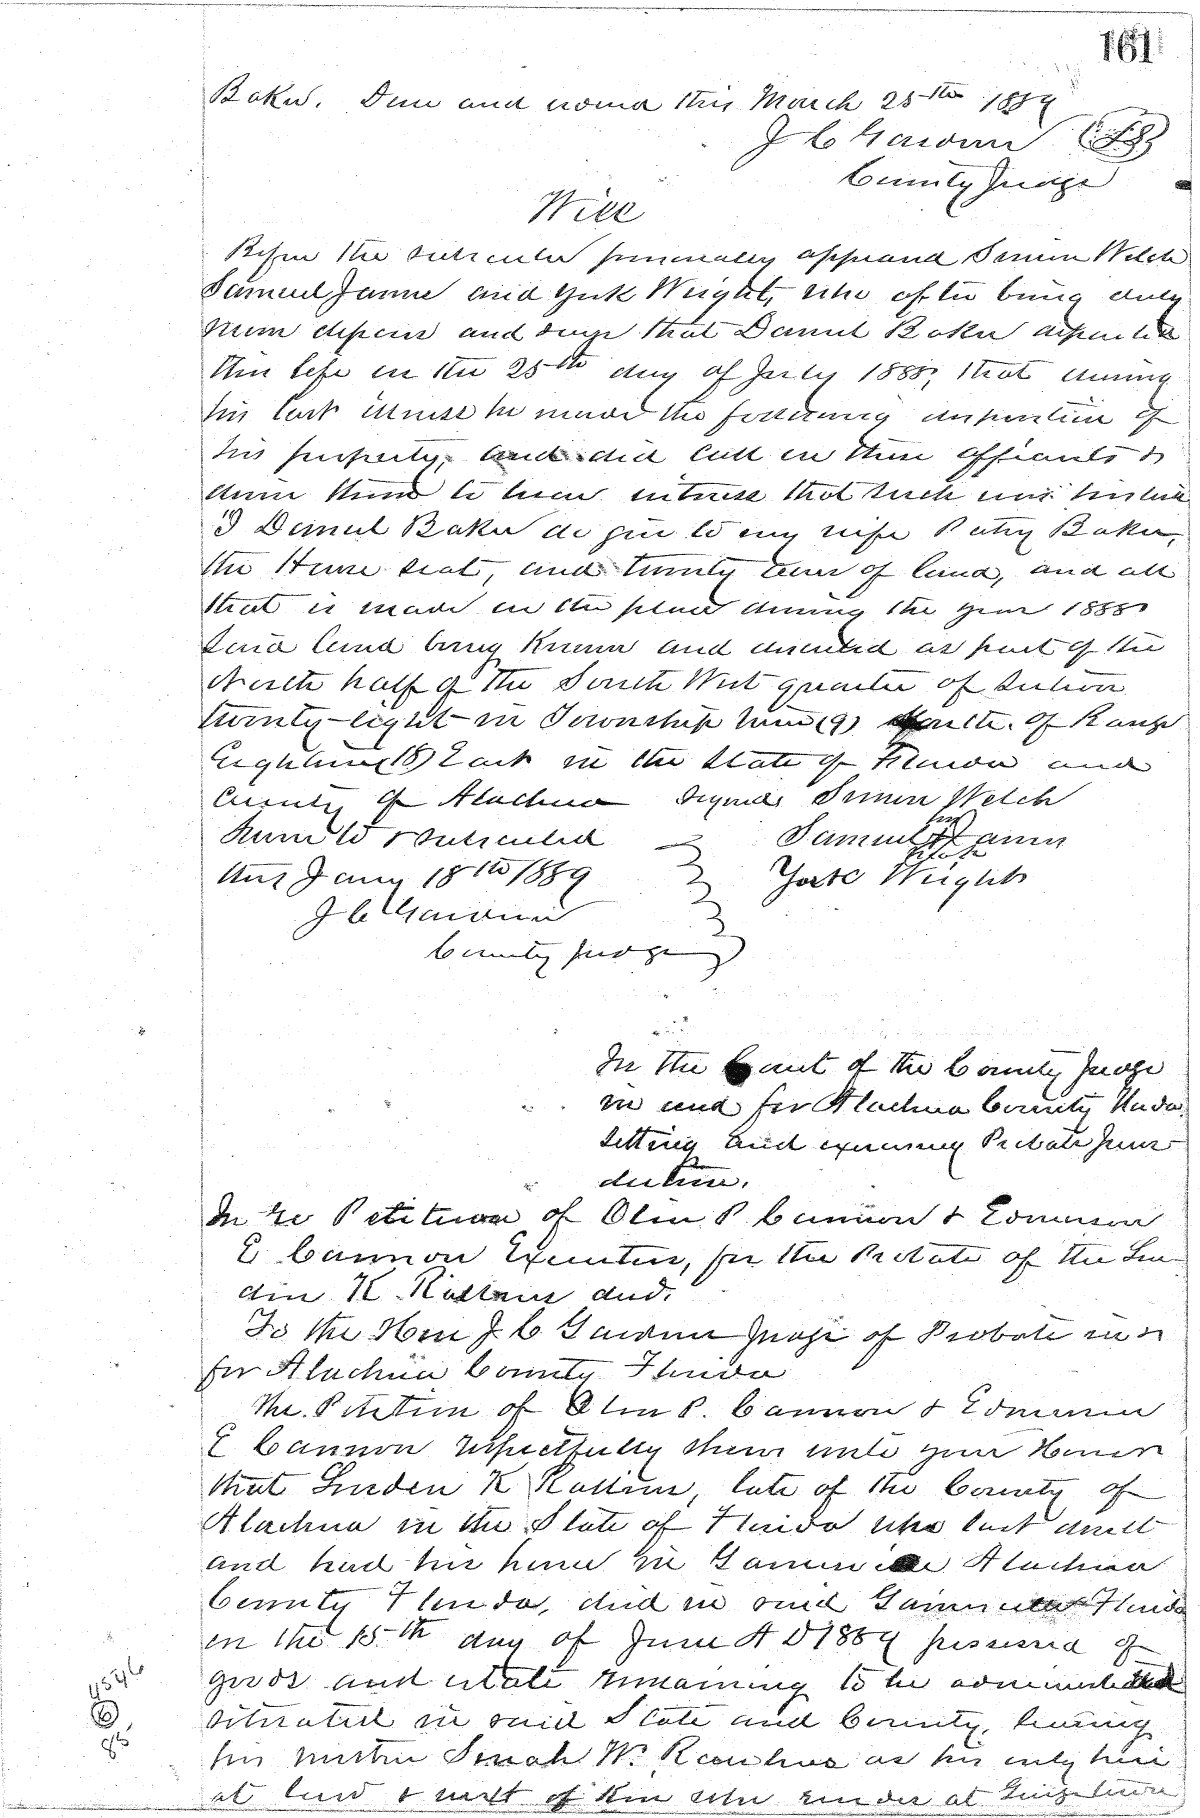 161
Baker. Done and signed this March 25th 1889
J C Gardner (LS)
County Judge
Will
Before the subscriber personally appeared Simon Welch
Samuel Janne and York Wright, who after being duly
sworn deposes and says that Daniel Baker departed
this life on the 25th day of July 1888, that during
his last illness he made the following disposition of
his property, and did call on these affiants &
desire them to bear witness that such was his will
"I Daniel Baker do give to my wife Patsy Baker,
the House seat, and twenty acres of land, and all
that is made on the place during the year 1888
Said land being known and described as part of the
North half of the South West quarter of Section
twenty-eight in Township nine (9) South. of Range
Eighteen (18) East in the State of Florida and
County of Alachua Signed Simon Welch
Sworn to & subscribed Samuel his mark Janns
this Jany 18th 1889 York Wright
J C Gardner
County Judge
In the Court of the County Judge
in and for Alachua County Florida.
Sitting and exercising Probate Juris-
diction.
In re Petition of Olin P Cannon & Edmerson
E Cannon Executors, for the Probate of the Lin-
den K. Rollins decd.
To the Hon J C Gardner Judge of Probate in &
for Alachua County Florida
The Petition of Olin P. Cannon & Edmerson
E Cannon respectfully shows unto your Honor
that Linden K Rollins, late of the County of
Alachua in the State of Florida who last dwelt
and had his home in Gainesville Alachua
County Florida, died in said Gainesville Florida
on the 15th day of June A D 1889 possessed of
goods and estate remaining to be administered
situated in said State and County, leaving
his mother Sarah W. as his only heir
at law & next of kin who resides at
4546
6
86